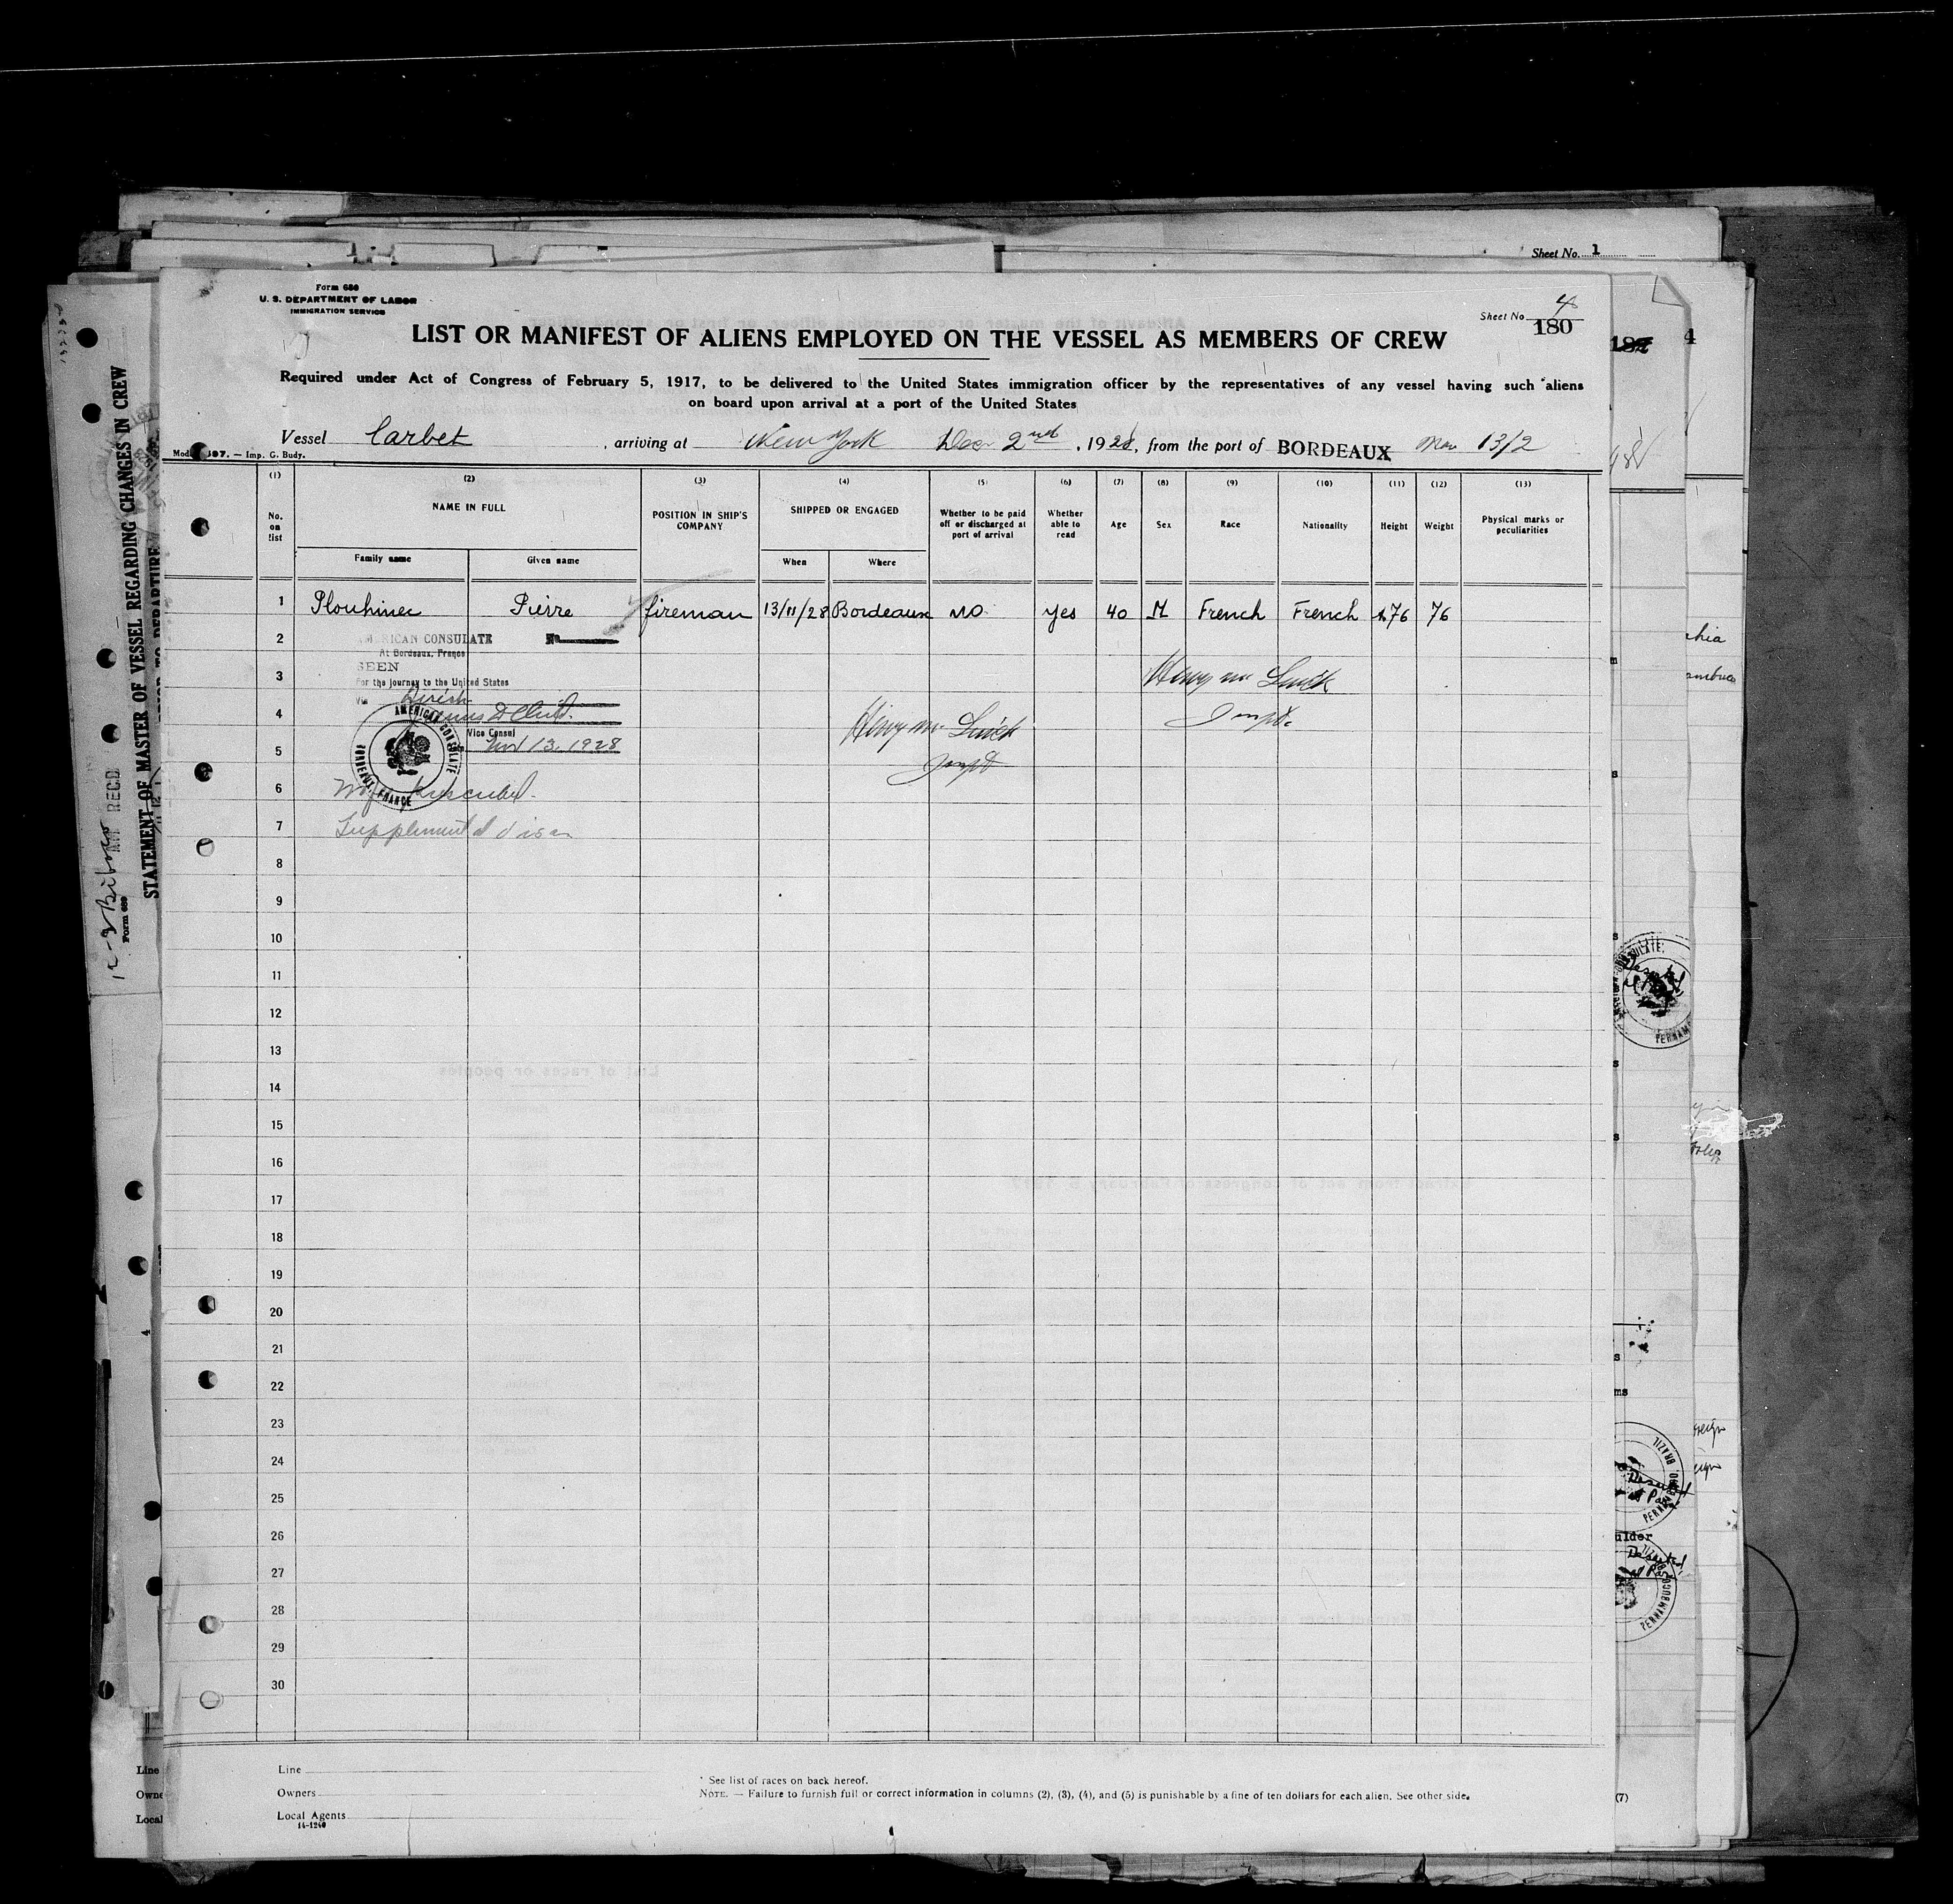 Sheet No. 1
Form 680
U. S. DEPARTMENT OF LABOR
IMMIGRATION SERVICE
Sheet No 4
180
LIST OR MANIFEST OF ALIENS EMPLOYED ON THE VESSEL AS MEMBERS OF CREW
Required under Act of Congress of February 5, 1917, to be delivered to the United States immigration officer by the representatives of any vessel having such aliens
on board upon arrival at a port of the United States
Vessel Carbet, arriving at New York Dec 2nd, 1928, from the port of BORDEAUX Nov 13/2
Imp. G. Budy.
(1) (2) (3) (4) (5) (6) (7) (8) (9) (10) (11) (12) (13)
No. on list NAME IN FULL POSITION IN SHIP'S COMPANY SHIPPED OR ENGAGED Whether to be paid off or discharged at port of arrival Whether able to read Age Sex Race Nationality Height Weight Physical marks or peculiarities
Family name Given name When Where
1 Plouhinec Pierre fireman 13/11/28 Bordeaux no yes 40 M French French 1.76 76
2 AMERICAN CONSULATE No
At Bordeaux, France
SEEN
3 For the journey to the United States
Via direct
4
Vice Consul
5 Nov 13, 1928
AMERICAN CONSULATE
BORDEAUX, FRANCE
Henry
Inspt.
Henry
Inspt
6 No fee prescribed.
7 Supplemental visa
8
9
10
11
12
13
14
15
16
17
18
19
20
21
22
23
24
25
26
27
28
29
30
Line
Owners
Local Agents
14-1240
* See list of races on back hereof.
NOTE. — Failure to furnish full or correct information in columns (2), (3), (4), and (5) is punishable by a fine of ten dollars for each alien. See other side.
STATEMENT OF MASTER OF VESSEL REGARDING CHANGES IN CREW
PRIOR TO DEPARTURE
Form 689
REC'D
Line
Local
4
PERNAMBUCO, BRAZIL
(7)